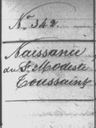 N° 342
Naissance
de St. Modeste
Toussaint